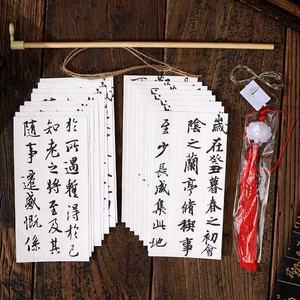 歲在癸丑暮春之初會
陰之蘭亭脩禊事
至少長咸集此地
於所遇蹔得於己
知老之將至及其
隨事遷感慨係